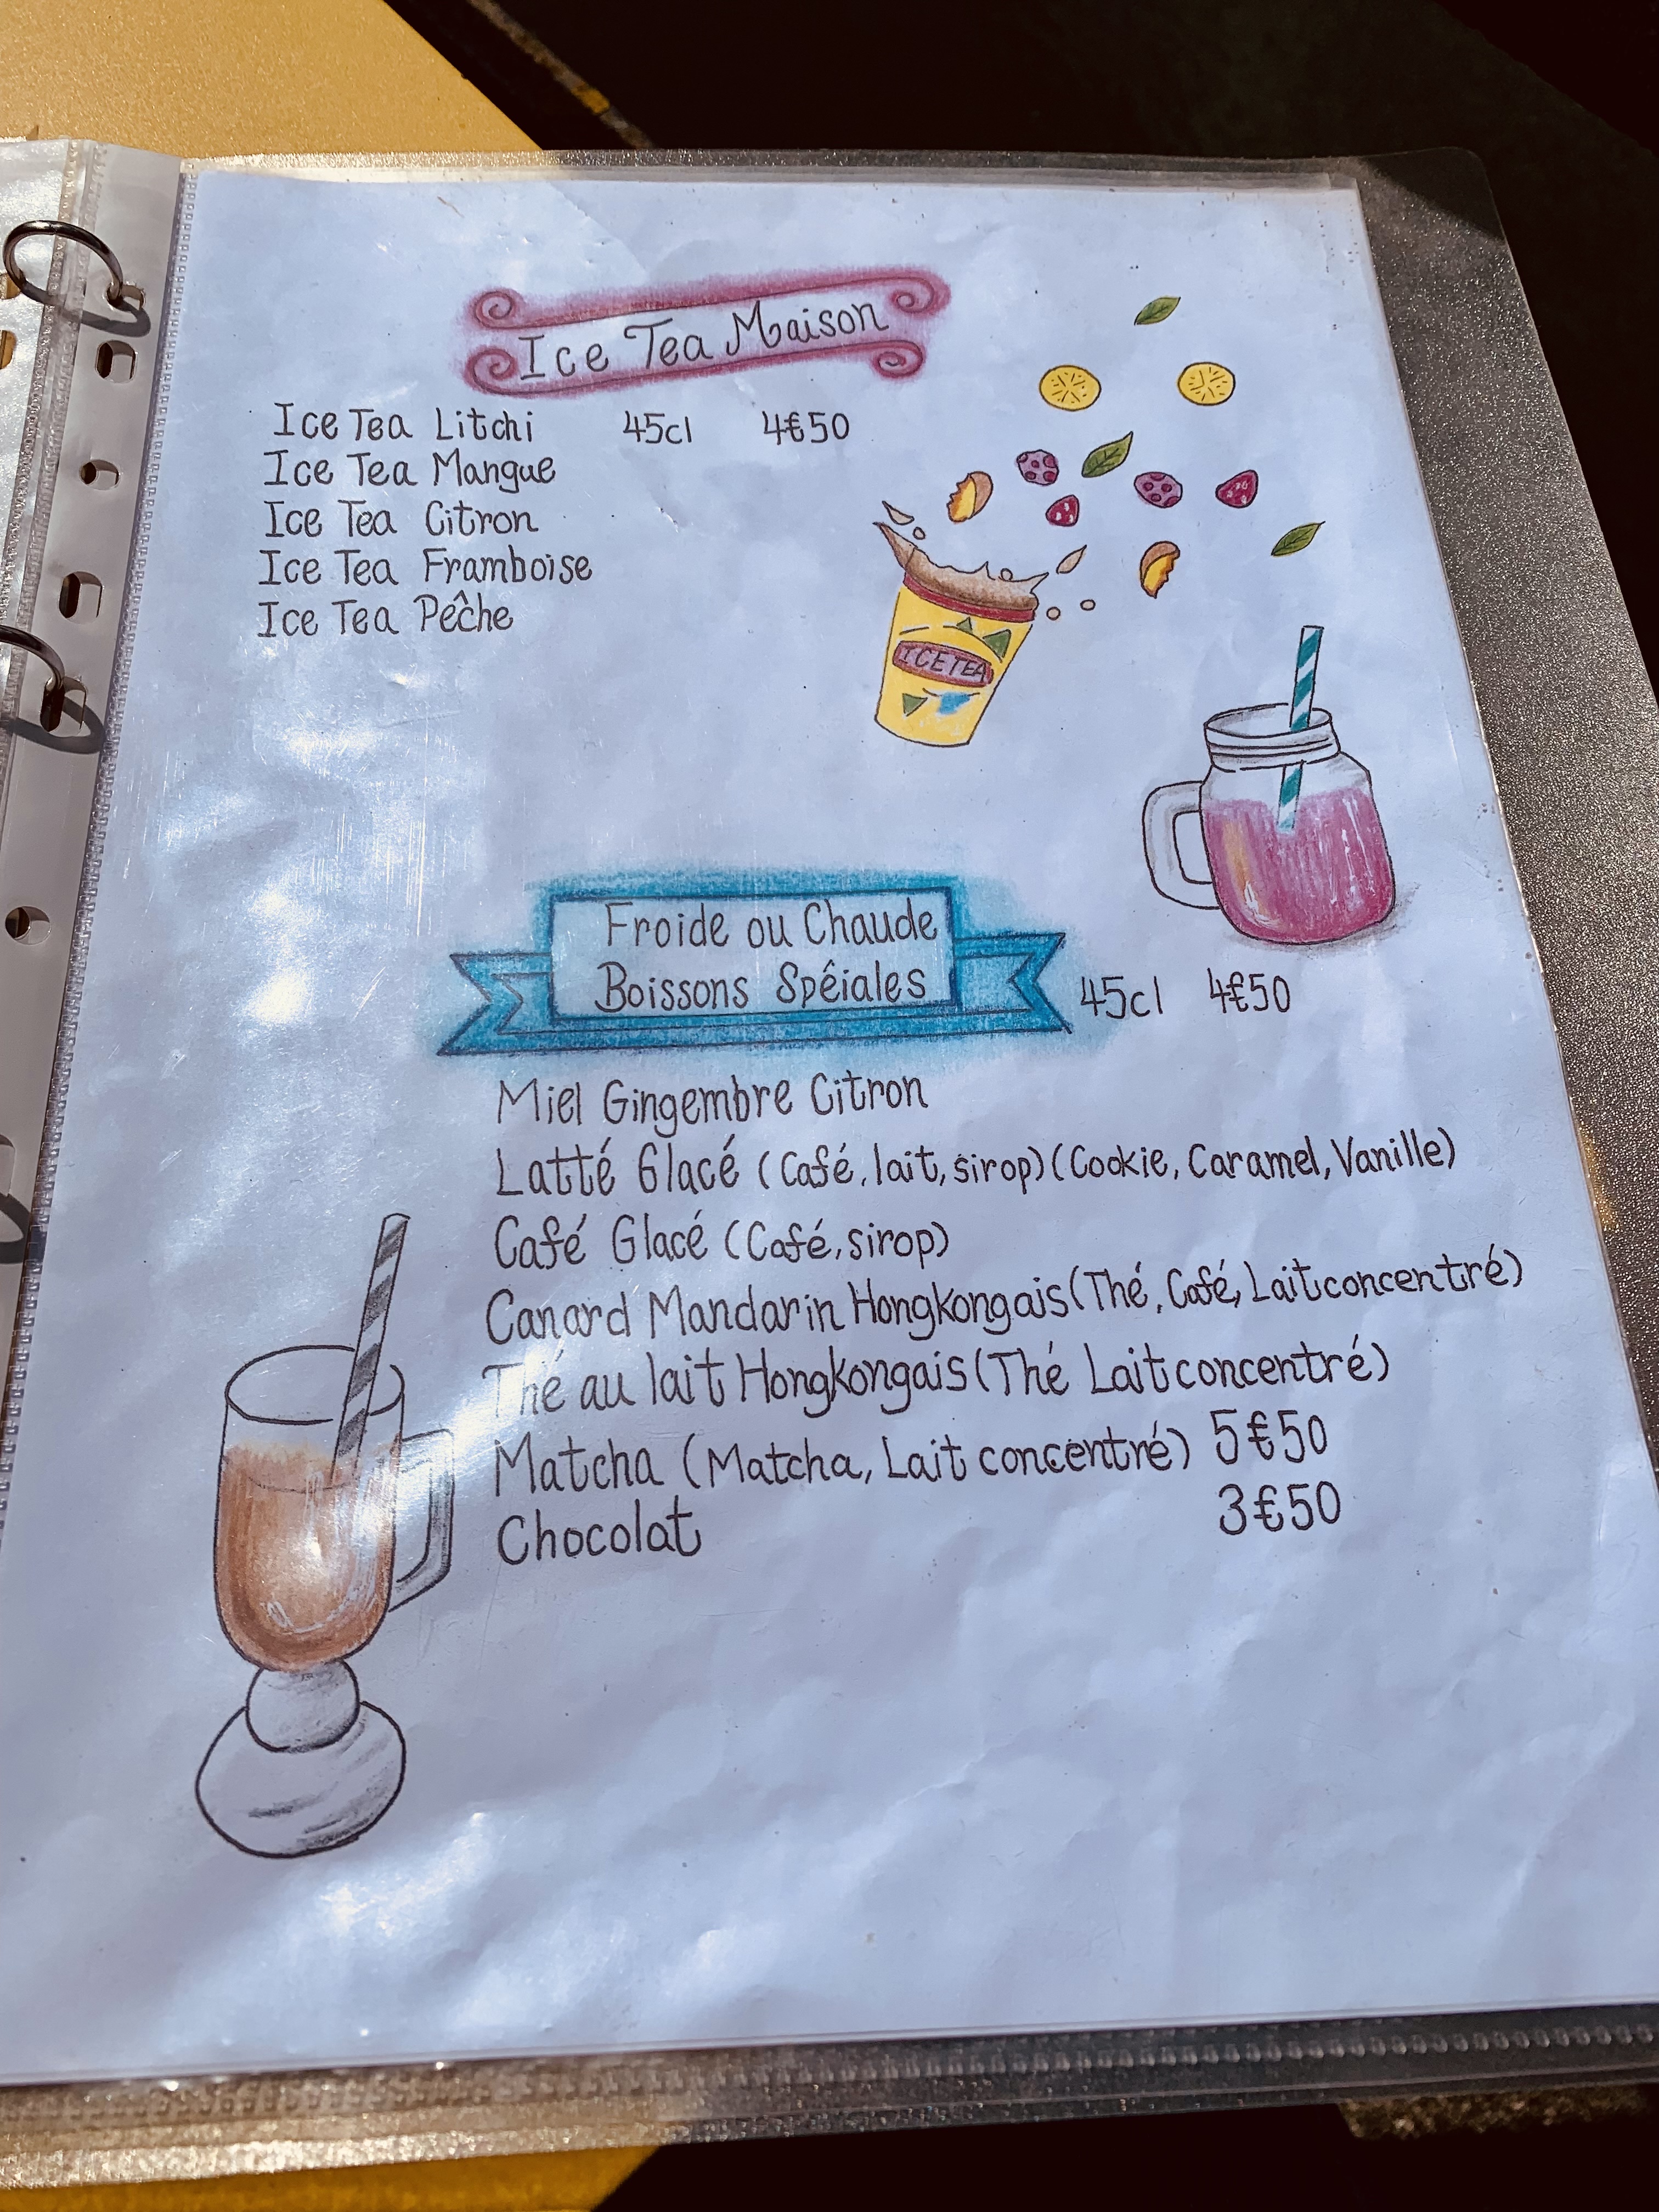 Ice Tea Maison
Ice Tea Litchi 45cl 4€50
Ice Tea Mangue
Ice Tea Citron
Ice Tea Framboise
Ice Tea Pêche
ICE TEA
Froide ou Chaude
Boissons Spêiales 45cl 4€50
Miel Gingembre Citron
Latté Glacé (Café, lait, sirop) (Cookie, Caramel, Vanille)
Café Glacé (Café, sirop)
Canard Mandarin Hongkongais (Thé, Café, Lait concentré)
Thé au lait Hongkongais (Thé Lait concentré)
Matcha (Matcha, Lait concentré) 5€50
Chocolat 3€50